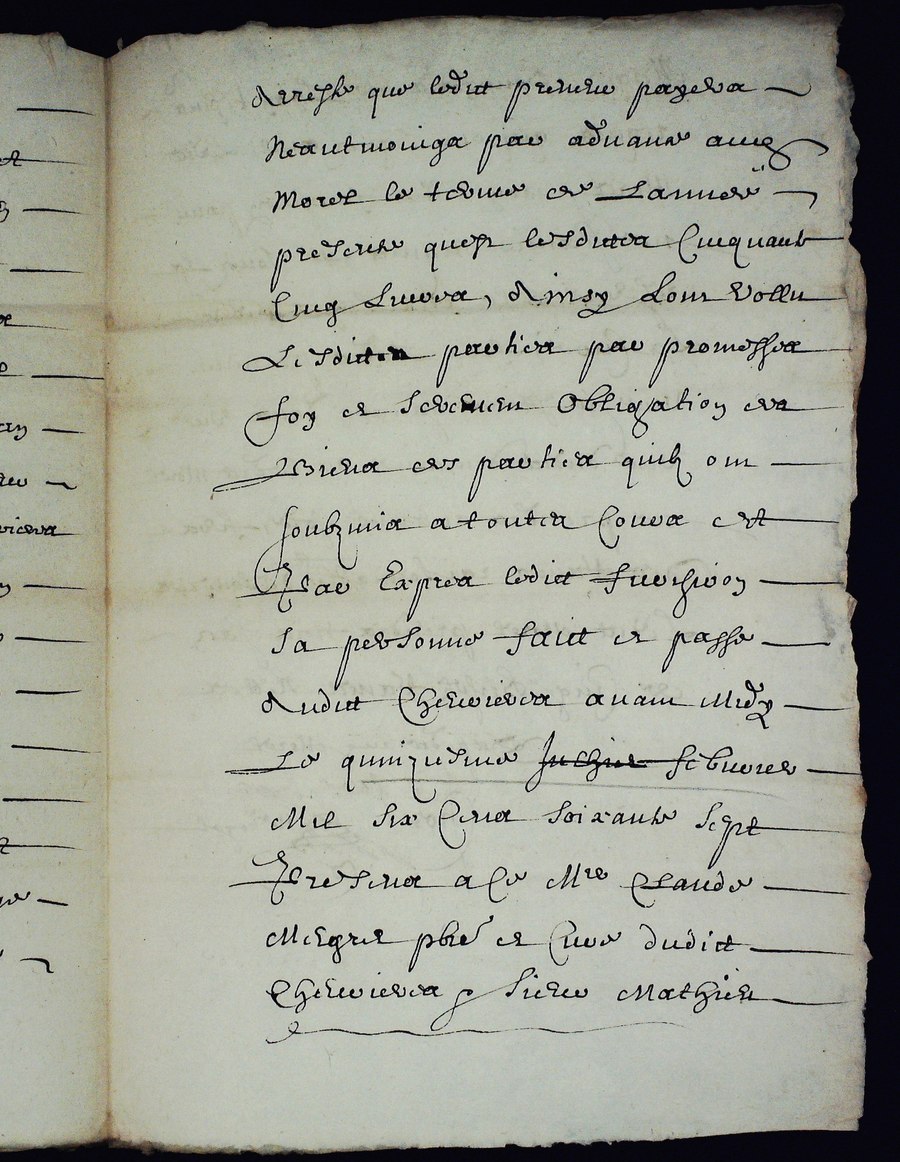 Arreste que ledict preneur payera
Neantmoings par advance audict
Morel le terme de Lannée
presente quest lesdittes Cinquante
Cinq Livres, Ainsy Lont vollu
Lesdittes parties par promesses
foy et serment Obligation des
Biens des parties quils ont
soubzmis a toutes Cours et
Par Exprez ledict
sa personne faict et passé
Audict Cheuvieres avant Midy
Le quinziesme febvrier
Mil six Cens soixante Sept
Presens a Ce Mre Claude
Megret pbre et Curé dudict
Cheuvieres Sieur Mathieu